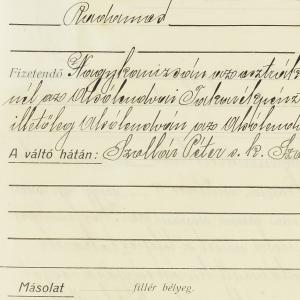 Radamos
Fizetendő Nagykanizsán az osztrák
nél az Alsólendvai Takarékpénz
illetőleg Alsólendván az Alsólend
A váltó hátán: Szollár Péter s. k. Szo
Másolat fillér bélyeg.